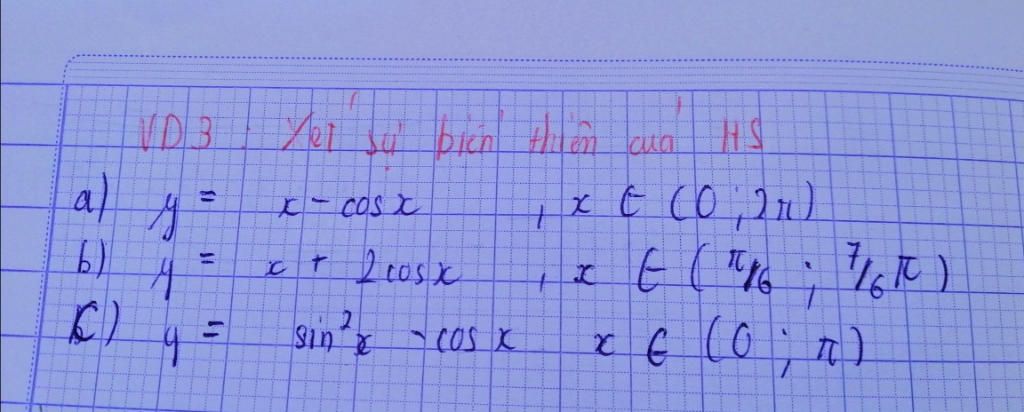 VD3 : Xét sự biến thiên của HS
a) y = x - cosx , x ∈ (0 ; 2π)
b) y = x + 2cosx , x ∈ (π/6 ; 7/6π)
c) y = sin²x - cosx x ∈ (0 ; π)